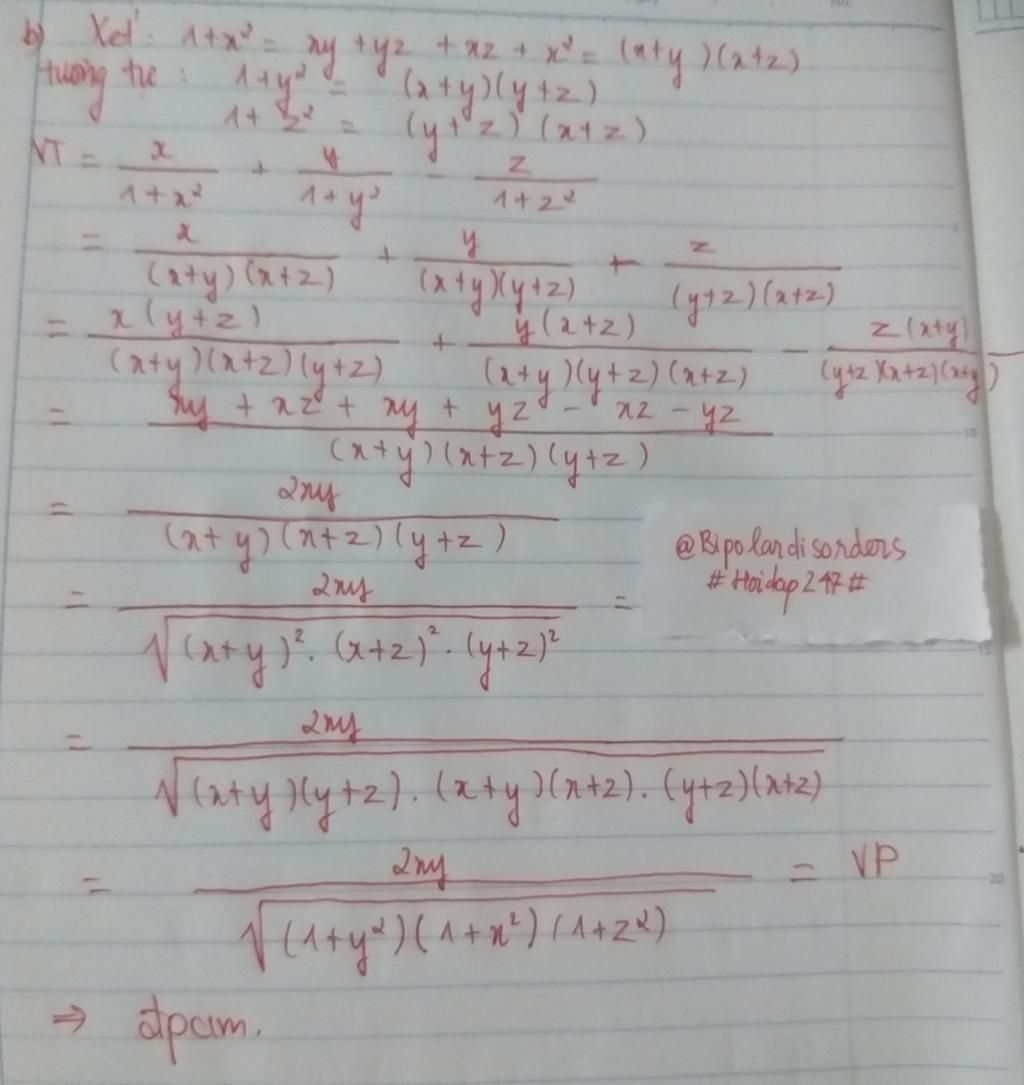 b) Xét: 1+x² = xy + yz + xz + x² = (x+y)(x+z)
tương tự: 1+y² = (x+y)(y+z)
1+z² = (y+z)(x+z)
VT = x/(1+x²) + y/(1+y²) - z/(1+z²)
= x/((x+y)(x+z)) + y/((x+y)(y+z)) + z/((y+z)(x+z))
= x(y+z)/((x+y)(x+z)(y+z)) + y(x+z)/((x+y)(y+z)(x+z)) - z(x+y)/((y+z)(x+z)(x+y))
= (xy + xz + xy + yz - xz - yz)/((x+y)(x+z)(y+z))
= 2xy/((x+y)(x+z)(y+z))
@Bipolardisorders
#Hoidap247#
= 2xy/√((x+y)².(x+z)².(y+z)²) =
= 2xy/√((x+y)(y+z).(x+y)(x+z).(y+z)(x+z))
= 2xy/√((1+y²)(1+x²)(1+z²)) = VP
⇒ đpcm.